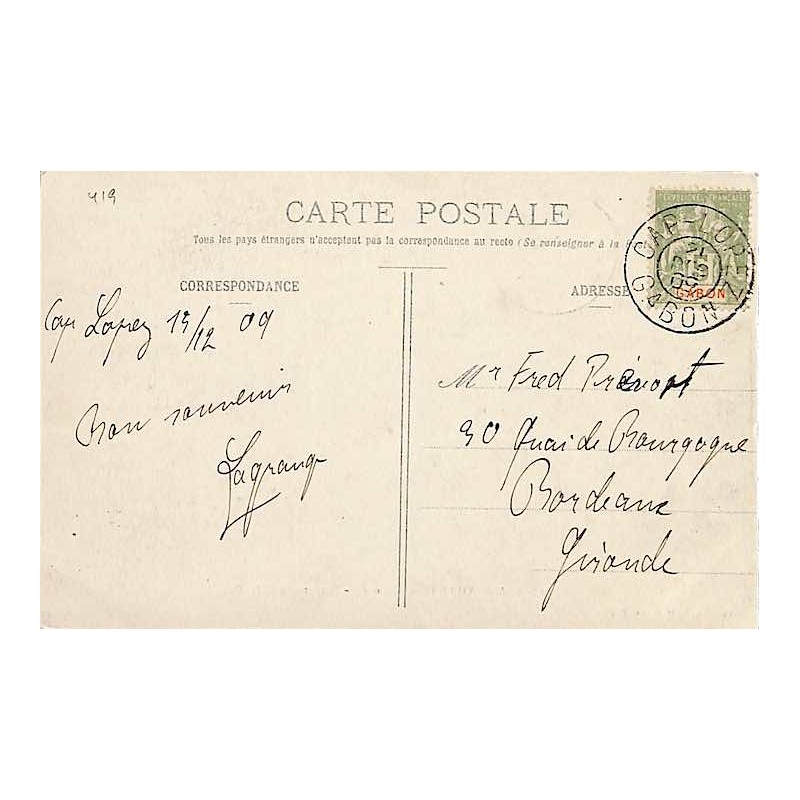 419
CARTE POSTALE
Tous les pays étrangers n'acceptent pas la correspondance au recto (Se renseigner à la
CORRESPONDANCE
ADRESSE
CAP-LOPEZ
GABON
GABON
Cap Lopez 15/12 09
Bon souvenir
Lagrange
Mr Fred Prévost
30 Quai de Bourgogne
Bordeaux
Gironde